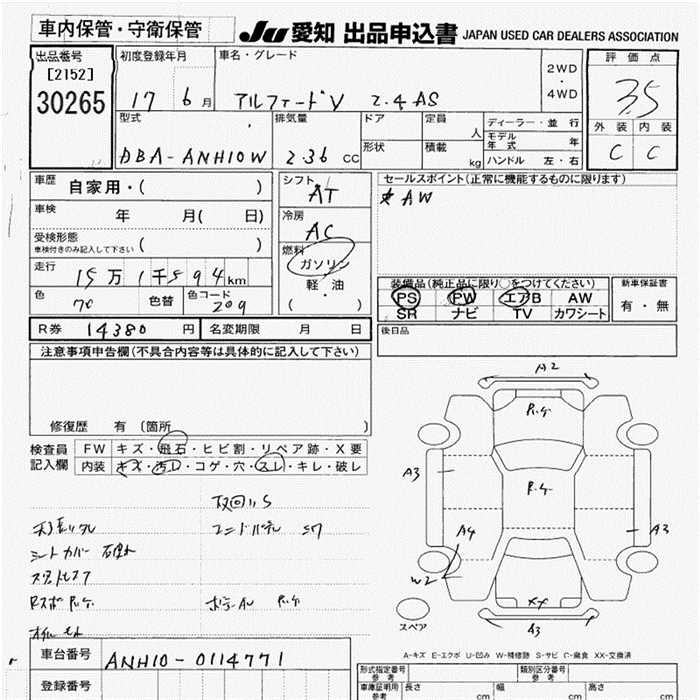 車内保管・守衛保管
JU 愛知 出品申込書 JAPAN USED CAR DEALERS ASSOCIATION
出品番号 [2152] 30265
初度登録年月 17 6月
車名・グレード アルファードV 2.4 AS
2WD ・ 4WD
評価点 3.5
外装 内装
C C
型式 DBA-ANH10W
排気量 2.36 cc
ドア 形状
定員 人
積載 kg
ディーラー・並行
モデル年式 年
ハンドル 左・右
車歴 自家用・( )
車検 年 月( 日)
受検形態 ( )
車検付きのみ記入して下さい
走行 15万1千594km
色 70 色替 色コード 209
シフト AT
冷房 AC
燃料 ガソリン
軽・油
( ・ )
セールスポイント(正常に機能するものに限ります)
AW
装備品(純正品に限り○をつけてください)
PS PW エアB AW
SR ナビ TV カワシート
新車保証書
有・無
後日品
R券 14380 円 名変期限 月 日
注意事項申告欄(不具合内容等は具体的に記入して下さい)
修復歴 有 (箇所 )
検査員記入欄
FW キズ・飛石・ヒビ割・リペア跡・X要
内装 キズ・汚レ・コゲ・穴・スレ・キレ・破レ
シートカバー
A2
A3
A4
W2
A3
XX
A3
スペア
A-キズ E-エクボ U-凹み W-補修跡 S-サビ C-腐食 XX-交換済
車台番号 ANH10-0114771
登録番号
形式指定番号 参考
類別区分番号 参考
車庫証明用 参考 長さ cm 幅 cm 高さ cm